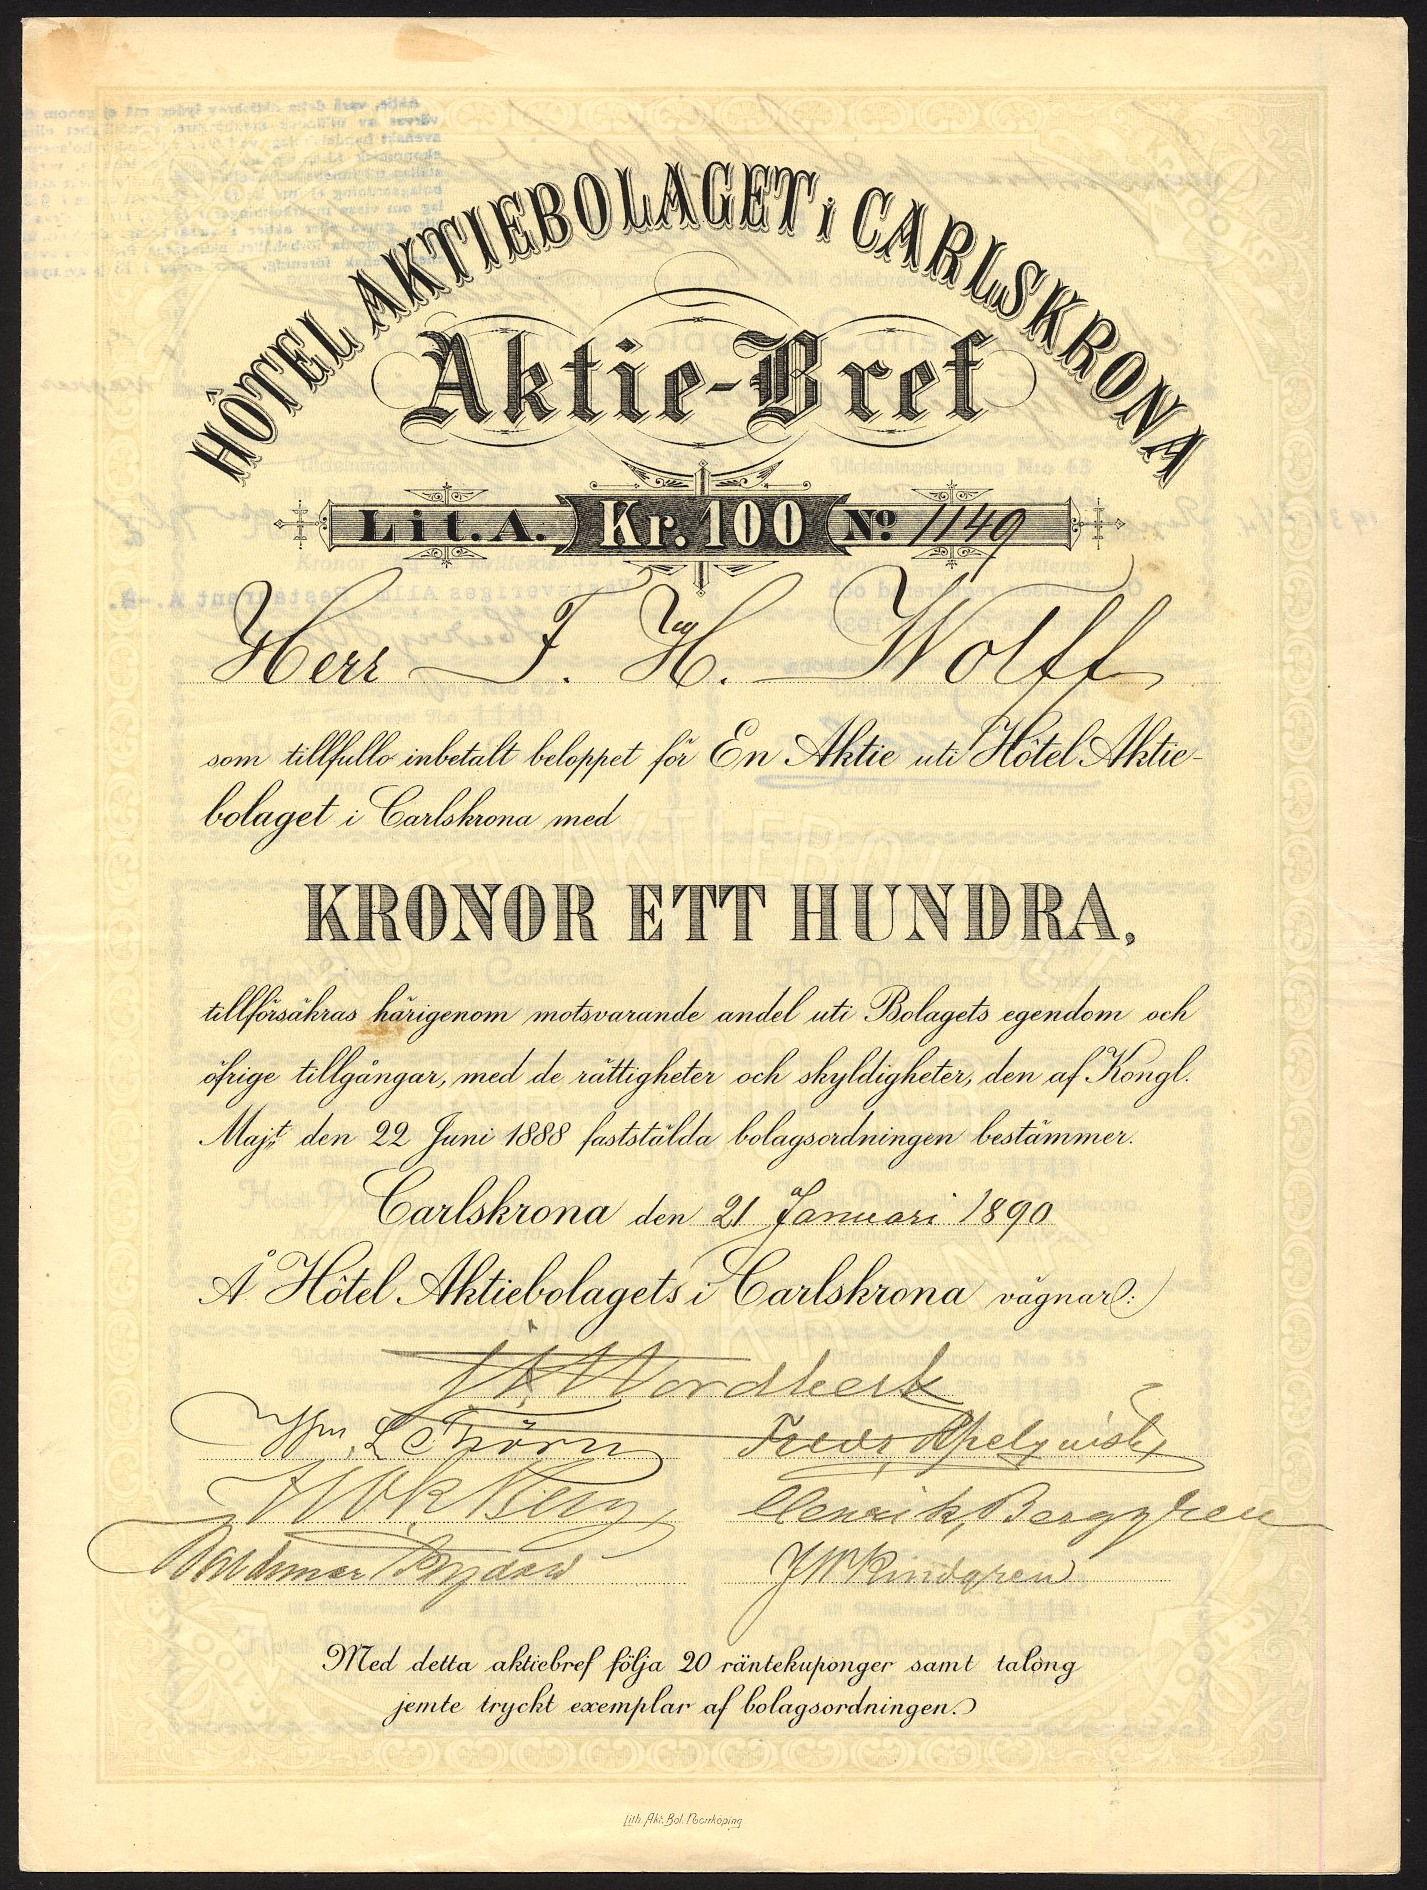 HÔTEL AKTIEBOLAGET i CARLSKRONA
Aktie-Bref
Lit. A. Kr. 100 No. 1149
Herr F. H. Wolff
som tillfullo inbetalt beloppet för En Aktie uti Hôtel Aktie-
bolaget i Carlskrona med
KRONOR ETT HUNDRA,
tillförsäkras härigenom motsvarande andel uti Bolagets egendom och
öfrige tillgångar, med de rättigheter och skyldigheter, den af Kongl.
Maj:t den 22 Juni 1888 faststälda bolagsordningen bestämmer.
Carlskrona den 21 Januari 1890
Å Hôtel Aktiebolagets i Carlskrona vägnar:
Nordbeck
Törn
Fredr. Apelquist
Berg
Henrik Berggren
Waldemar
Med detta aktiebref följa 20 räntekuponger samt talong
jemte tryckt exemplar af bolagsordningen.
Lith. Akt. Bol. Norrköping